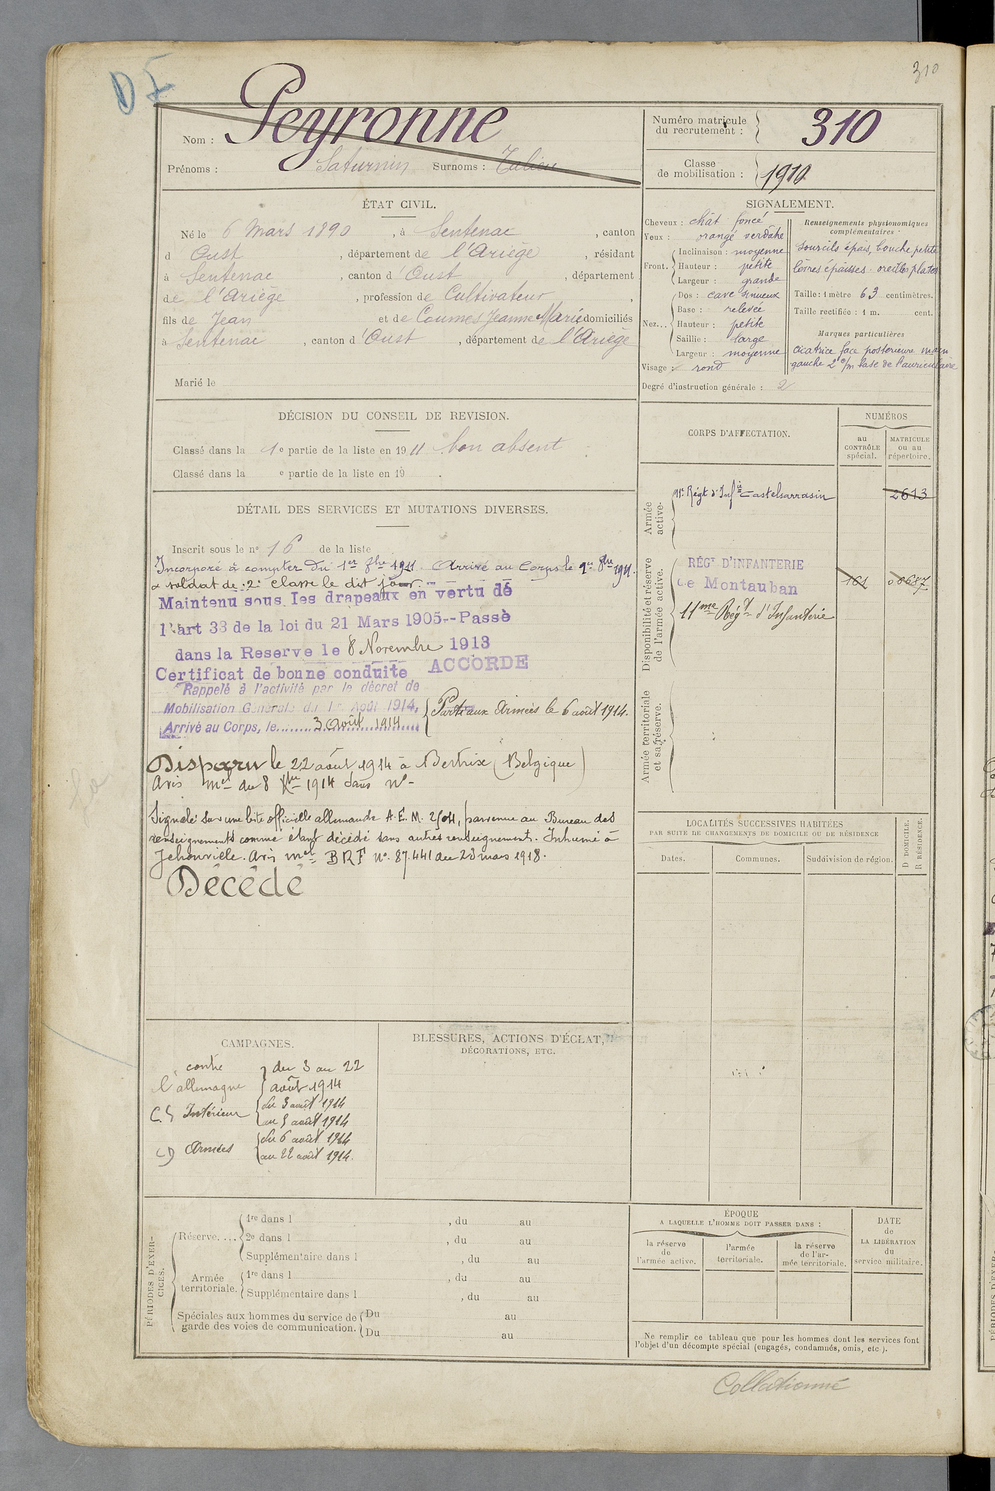 310
D F
Nom : Peyronne
Prénoms : Saturnin Surnoms : Julien
Numéro matricule du recrutement : 310
Classe de mobilisation : 1910
ÉTAT CIVIL.
Né le 6 Mars 1890, à Sentenac, canton
d'Oust, département de l'Ariège, résidant
à Sentenac, canton d'Oust, département
de l'Ariège, profession de Cultivateur,
fils de Jean et de Coumes Jeanne Marie domiciliés
à Sentenac, canton d'Oust, département de l'Ariège
Marié le
SIGNALEMENT.
Cheveux : chât foncé
Yeux : orangé verdâtre
Front. Inclinaison : moyenne
Hauteur : petite
Largeur : grande
Nez.. Dos : cave sinueux
Base : relevée
Hauteur : petite
Saillie : large
Largeur : moyenne
Visage : rond
Renseignements physionomiques complémentaires :
Sourcils épais, bouche petite
lèvres épaisses. oreilles plates
Taille : 1 mètre 63 centimètres.
Taille rectifiée : 1 m. cent.
Marques particulières
cicatrice face postérieure main
gauche 2 c/m base de l'auriculaire
Degré d'instruction générale : 2
DÉCISION DU CONSEIL DE REVISION.
Classé dans la 1e partie de la liste en 1911 bon absent
Classé dans la e partie de la liste en 19 .
DÉTAIL DES SERVICES ET MUTATIONS DIVERSES.
Inscrit sous le no 16 de la liste
Incorporé à compter du 1er 8bre 1911. Arrivé au Corps le 9bre 1911.
et soldat de 2e classe le dit jour.
Maintenu sous les drapeaux en vertu de
l'art 33 de la loi du 21 Mars 1905--Passé
dans la Reserve le 8 Novembre 1913
Certificat de bonne conduite ACCORDÉ
Rappelé à l'activité par le décret de
Mobilisation Générale du 1er Août 1914,
Arrivé au Corps, le 3 août 1914
Parti aux Armées le 6 août 1914.
Disparu le 22 août 1914 à Bertrix (Belgique)
Avis mel du 8 Xbre 1914 sans no -
Signalé sur une liste officielle allemande A.E.M. parvenue au Bureau des
renseignements comme étant décédé sans autres renseignements. Inhumé à
Jehonville. Avis mel BRF No. 87.441 du 23 mars 1918.
Décédé
CORPS D'AFFECTATION.
NUMÉROS
au CONTRÔLE spécial.
MATRICULE ou au répertoire.
Armée active.
11e Régt d'Infie Castelsarrasin 2613
Disponibilité et réserve de l'armée active.
RÉGt D'INFANTERIE
de Montauban
11me Régt d'Infanterie
Armée territoriale et sa réserve.
LOCALITÉS SUCCESSIVES HABITÉES
PAR SUITE DE CHANGEMENTS DE DOMICILE OU DE RÉSIDENCE
D DOMICILE.
R RÉSIDENCE.
Dates.
Communes.
Subdivision de région.
CAMPAGNES.
contre l'allemagne du 3 au 22 août 1914
Intérieur du 3 août 1914 au 5 août 1914
Armées du 6 août 1914 au 22 août 1914.
BLESSURES, ACTIONS D'ÉCLAT,
DÉCORATIONS, ETC.
PÉRIODES D'EXERCICES.
Réserve.... 1re dans l , du au
2e dans l , du au
Supplémentaire dans l , du au
Armée territoriale. 1re dans l , du au
Supplémentaire dans l , du au
Spéciales aux hommes du service de garde des voies de communication. Du au
Du au
ÉPOQUE
A LAQUELLE L'HOMME DOIT PASSER DANS :
la réserve de l'armée active.
l'armée territoriale.
la réserve de l'armée territoriale.
DATE de LA LIBÉRATION du service militaire.
Ne remplir ce tableau que pour les hommes dont les services font
l'objet d'un décompte spécial (engagés, condamnés, omis, etc.).
Collationné